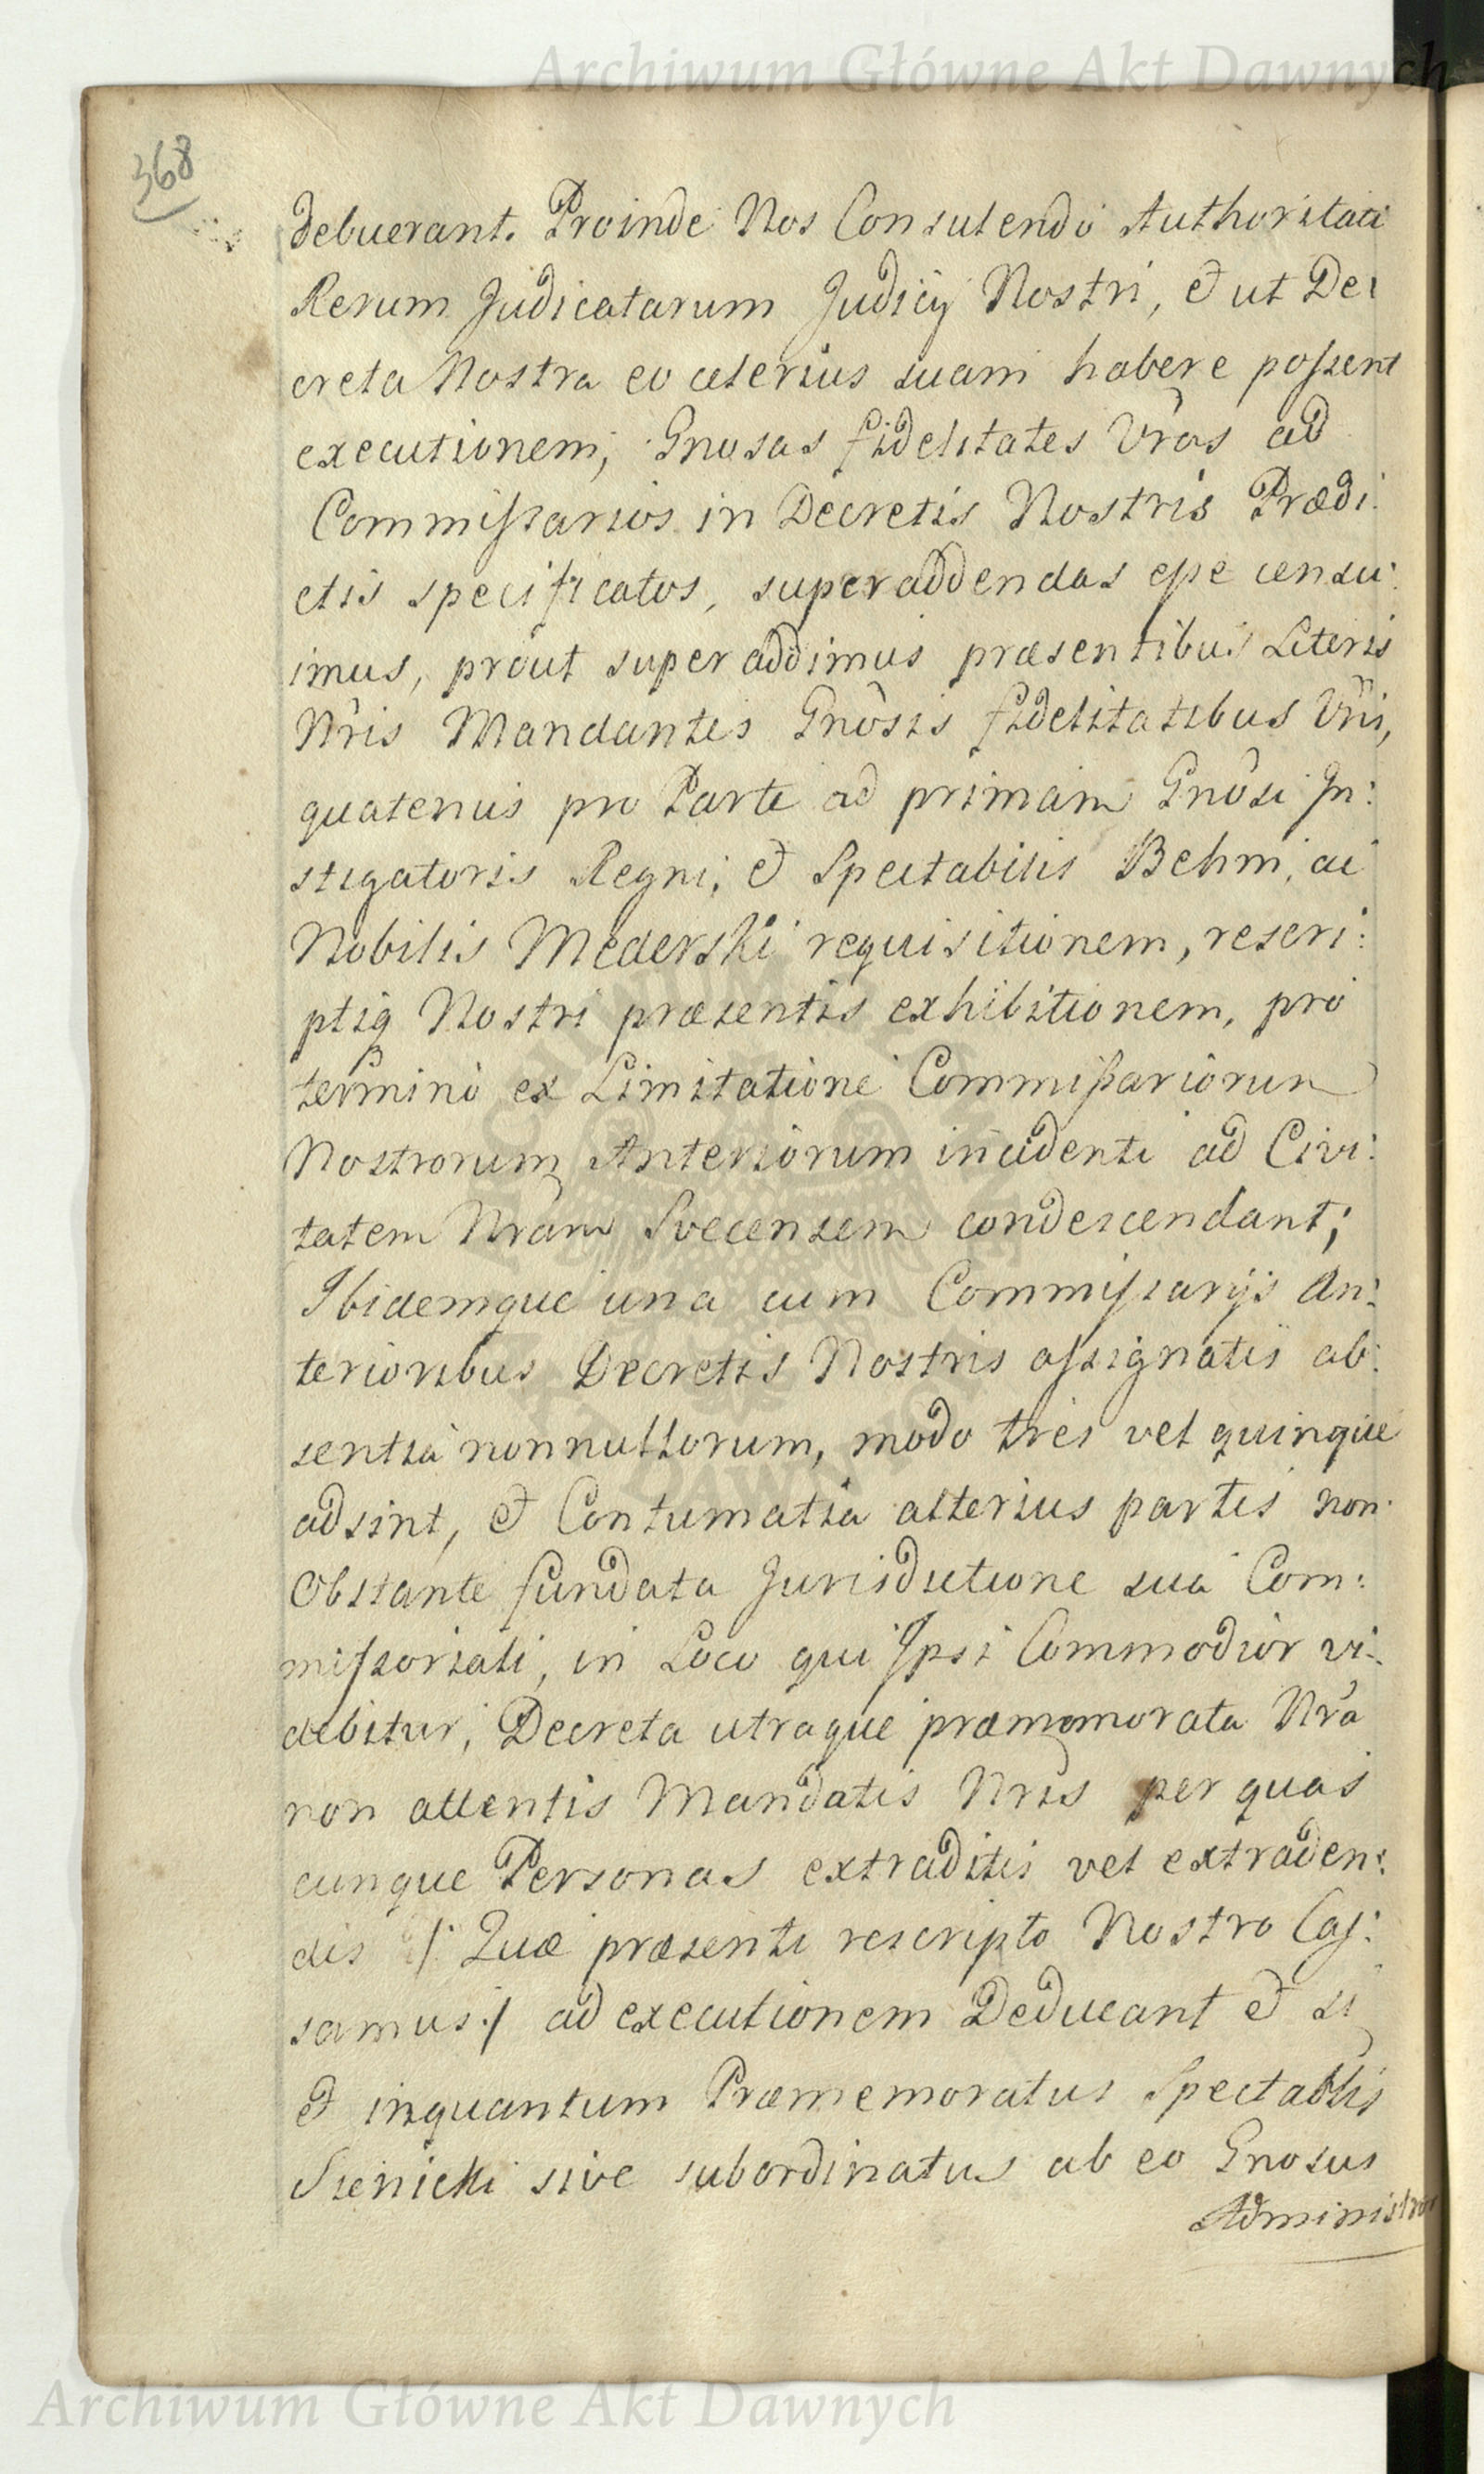 Archiwum Główne Akt Dawnych
368
debuerant. Proinde Nos Consulendo Authoritati
Rerum Judicatarum Judicij Nostri, et ut De:
creta Nostra eo celerius suam habere possent
executionem, Gnosas fidelitates Vras ad
Commissarios in Decretis Nostris Prædi:
ctis specificatos, superaddendas esse censu:
imus, prout superaddimus præsentibus Literis
Nris Mandantes Gnosis fidelitatibus Vris,
quatenus pro Parte ad primam Gnosi In:
stigatoris Regni, et Spectabilis Behm, ac
Nobilis Mederski requisitionem, rescri:
ptiq Nostri præsentis exhibitionem, pro
termino ex Limitatione Commissariorum
Nostrorum Anteriorum incidenti ad Civi:
tatem Nram Svecensem condescendant;
Ibidemque una cum Commissarijs An:
terioribus Decretis Nostris assignatis ab:
sentia nonnullorum, modo tres vel quinque
adsint, et Contumatia alterius partis non
Obstante fundata Jurisdictione sua Com:
missoriali, in Loco qui Ipsi Commodior vi:
debitur, Decreta utraque præmemorata Nra
non attentis Mandatis Nris per quas
cunque Personas extraditis vel extraden:
dis /: Quæ præsenti rescripto Nostro Cas:
samus :/ ad executionem Deducant et si
et inquantum Præmemoratus Spectablis
Sienicki sive subordinatus ab eo Gnosus
Administror
ARCHIWUM GŁÓWNE
AKT DAWNYCH
Archiwum Główne Akt Dawnych